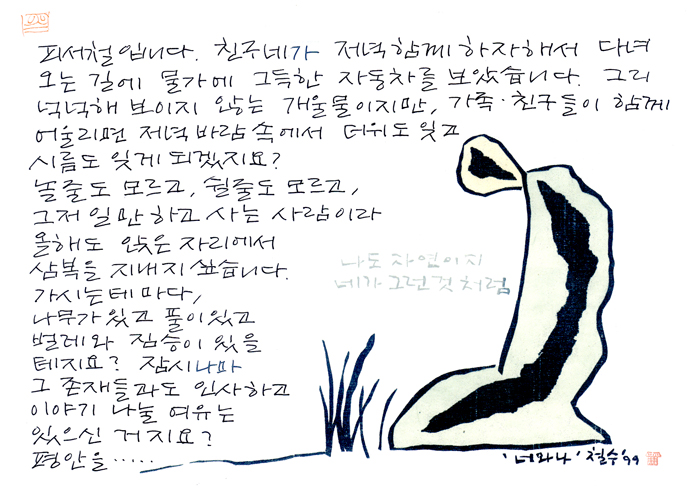 피서철입니다. 친구네가 저녁 함께 하자해서 다녀
오는 길에 물가에 그득한 자동차를 보았습니다. 그리
넉넉해 보이지 않는 개울물이지만, 가족·친구들이 함께
어울리면 저녁바람 속에서 더위도 잊고
시름도 잊게 되겠지요?
놀줄도 모르고, 쉴줄도 모르고,
그저 일만 하고 사는 사람이라
올해도 앉은 자리에서
삼복을 지내지 싶습니다.
가시는데 마다,
나무가 있고 풀이 있고
벌레와 짐승이 있을
테지요? 잠시나마
그 존재들과도 인사하고
이야기 나눌 여유는
있으신 거지요?
평안을·····
나도 자연이지
네가 그런 것 처럼
'너와나' 철수 '99